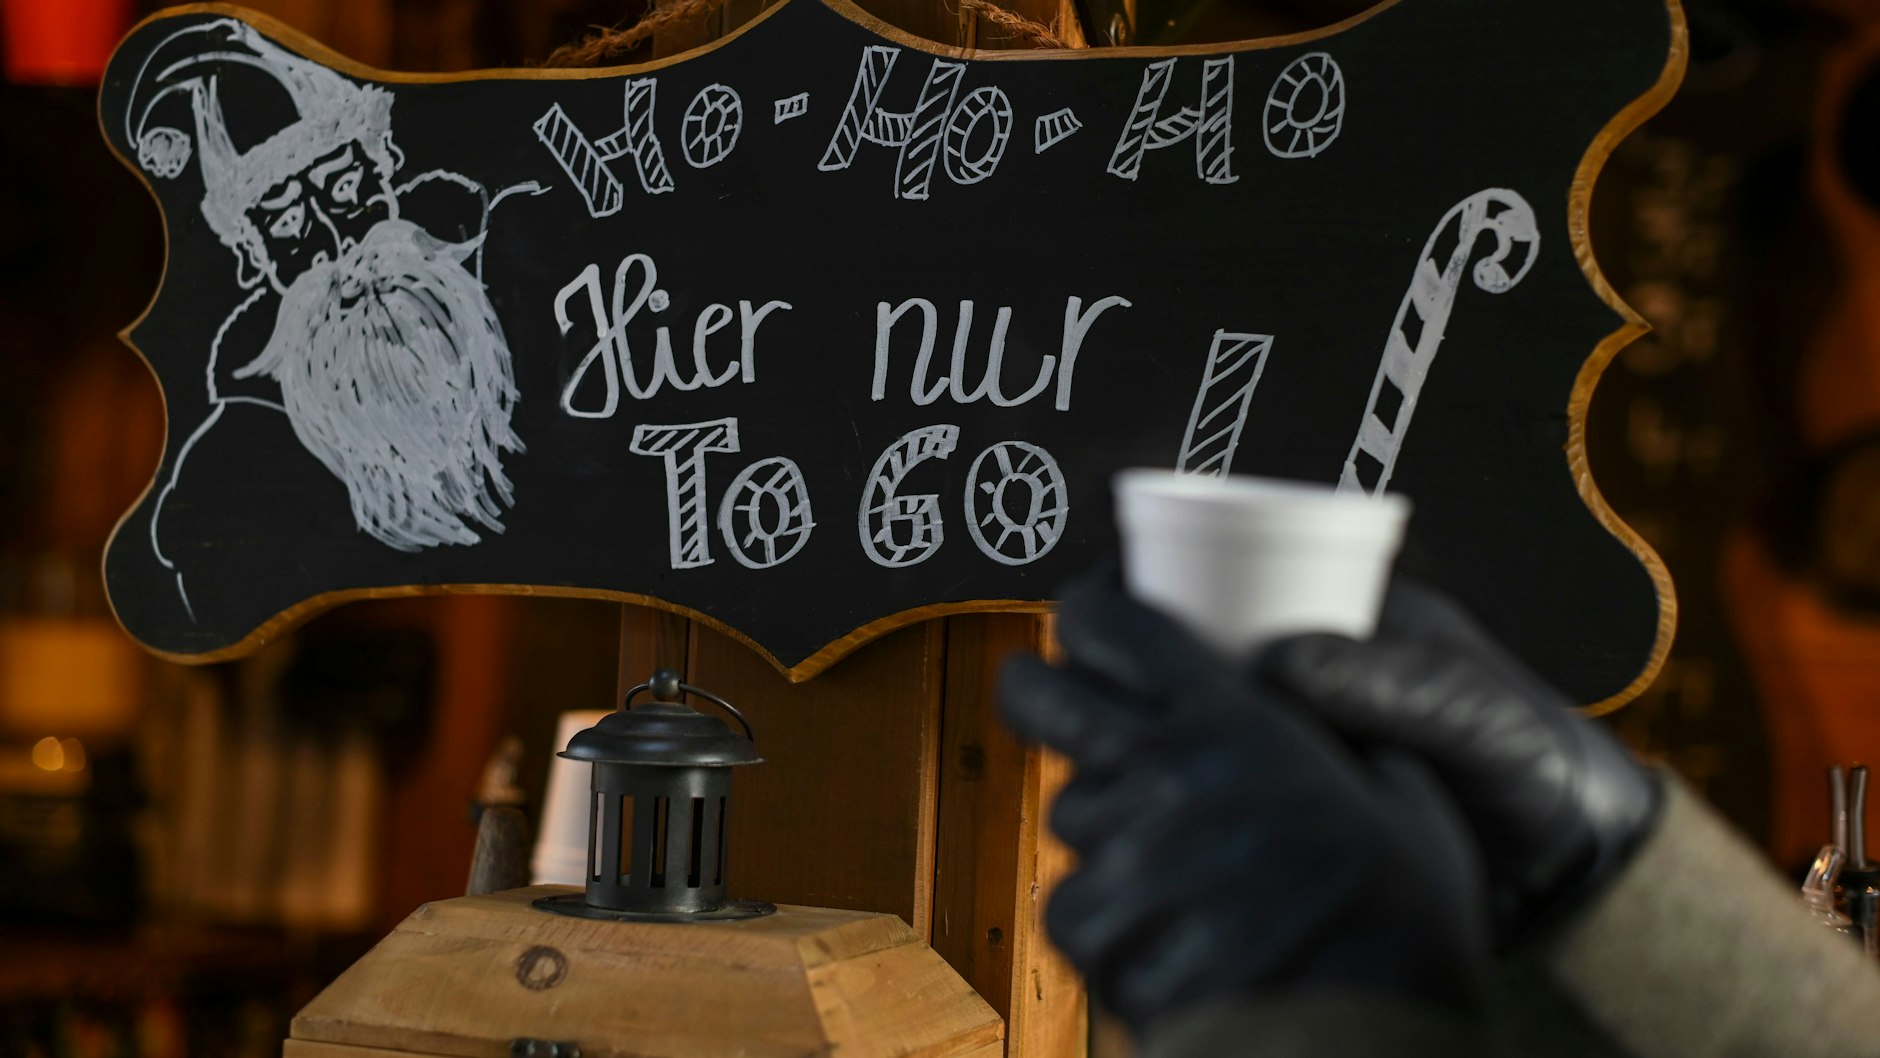 Ho-Ho-Ho
Hier nur
To Go !